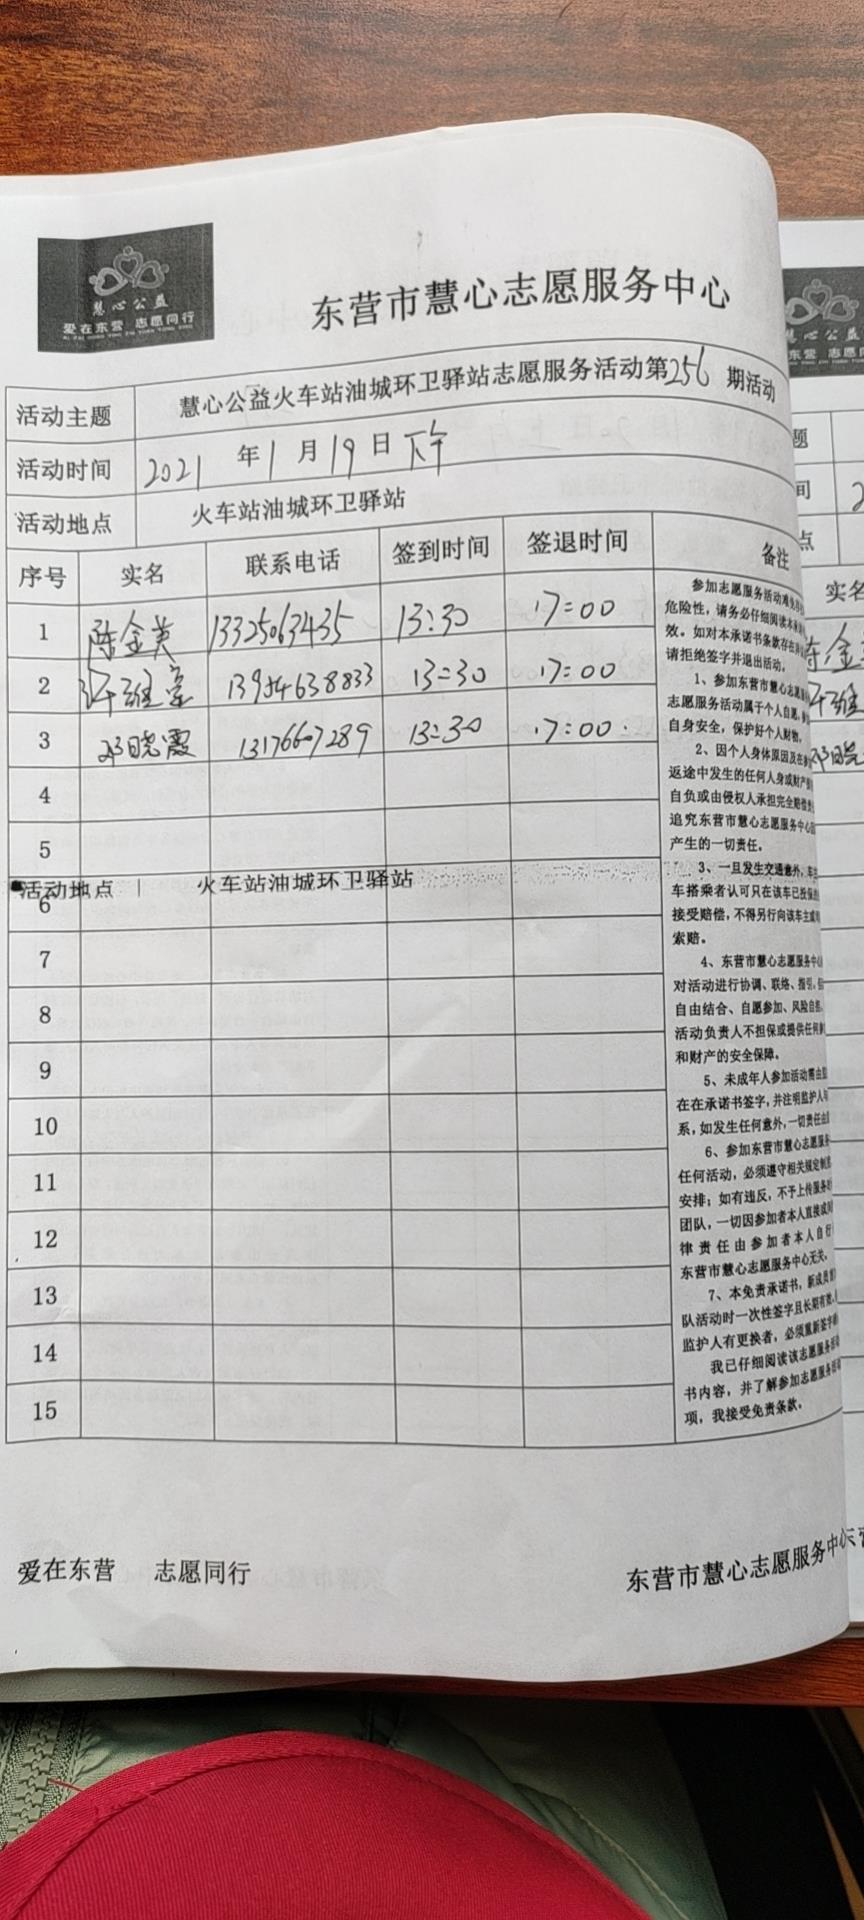 慧心公益
爱在东营 志愿同行
东营市慧心志愿服务中心
活动主题 慧心公益火车站油城环卫驿站志愿服务活动第256期活动
活动时间 2021年1月19日下午
活动地点 火车站油城环卫驿站
序号 实名 联系电话 签到时间 签退时间 备注
1 陈金美 13325063435 13:30 17:00
2 13954638833 13:30 17:00
3 邓晓霞 13176607289 13:30 17:00
4
5
活动地点 火车站油城环卫驿站
6
7
8
9
10
11
12
13
14
15
参加志愿服务活动难免
危险性，请务必仔细阅读本
效。如对本承诺书条款存在
请拒绝签字并退出活动。
1、参加东营市慧心志愿
志愿服务活动属于个人自愿，
自身安全，保护好个人财物。
2、因个人身体原因及在参
返途中发生的任何人身或财产
自负或由侵权人承担完全赔偿
追究东营市慧心志愿服务中心
产生的一切责任。
3、一旦发生交通意外，车
车搭乘者认可只在该车已投保
接受赔偿，不得另行向该车主或
索赔。
4、东营市慧心志愿服务中心
对活动进行协调、联络、指引，
自由结合、自愿参加、风险自担，
活动负责人不担保或提供任何
和财产的安全保障。
5、未成年人参加活动需由监
在在承诺书签字，并注明监护人
系，如发生任何意外，一切责任由
6、参加东营市慧心志愿服务
任何活动，必须遵守相关规定制度
安排；如有违反，不予上传服务时
团队，一切因参加者本人直接或间
律责任由参加者本人自行
东营市慧心志愿服务中心无关。
7、本免责承诺书，新成员首
队活动时一次性签字且长期有效。
监护人有更换者，必须重新签字
我已仔细阅读该志愿服务活动
书内容，并了解参加志愿服务活动
项，我接受免责条款。
爱在东营 志愿同行
东营市慧心志愿服务中心